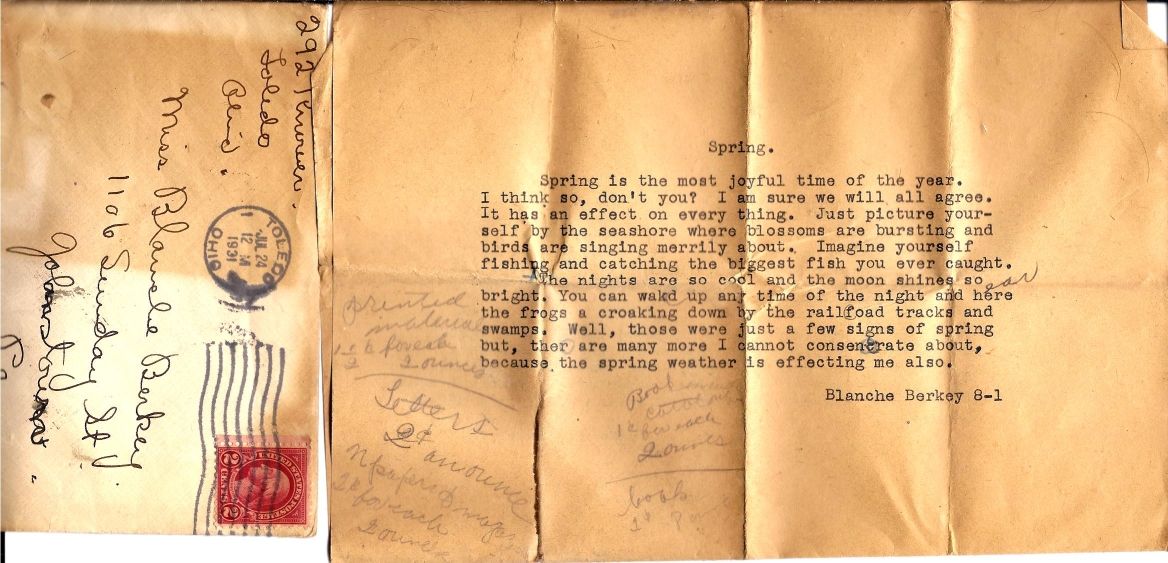 2927
Toledo
Ohio.
TOLEDO
JUL 24
12 M
1931
OHIO
Miss Blanche Berkey
1106 Sunday St.
Johnstown
Pa
UNITED STATES POSTAGE
2 CENTS 2
Spring.
Spring is the most joyful time of the year.
I think so, don't you? I am sure we will all agree.
It has an effect on every thing. Just picture your-
self by the seashore where blossoms are bursting and
birds are singing merrily about. Imagine yourself
fishing and catching the biggest fish you ever caught.
The nights are so cool and the moon shines so
ear
bright. You can wakd up any time of the night and here
the frogs a croaking down by the railfoad tracks and
swamps. Well, those were just a few signs of spring
but, ther are many more I cannot consentrate about,
because the spring weather is effecting me also.
Blanche Berkey 8-1
printed
material
2 ounces
Letters
2¢
an ounce
for each
2 ounces
1¢ for each
2 ounces
book